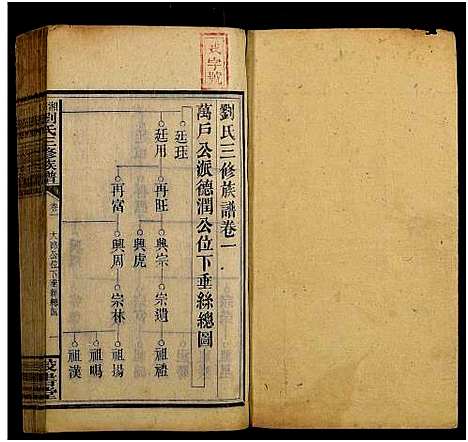 劉氏三修族譜卷一
萬戶公派德潤公位下垂絲總圖
廷珏
廷用 再旺 興宗 宗遺 祖禮
再富 興虎
興周 宗林 祖揚
祖鳴
祖漢
劉氏三修族譜
卷一
公位下垂絲總圖
一
字號